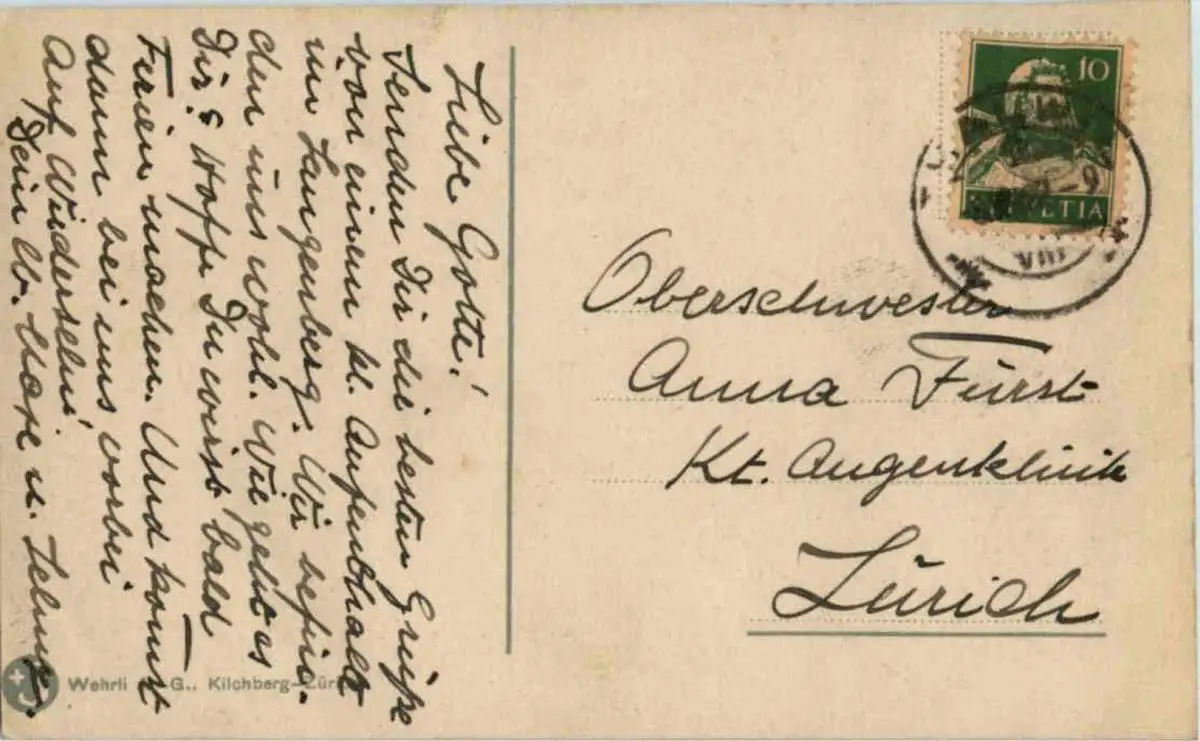 Liebe Gotte!
Senden Dir die besten Grüsse
von einem kl. Aufenthalt
im Langenberg. Wir befin-
den uns wohl. Wie geht es
Dir? Hoffe Du wirst bald
Ferien machen. Und komst
dann bei uns vorbei
Auf Wiedersehn!
Dein u.
Oberschwester
Anna Fürst
Kt. Augenklinik
Zürich
10
HELVETIA
VIII
Wehrli A.-G., Kilchberg-Zürich